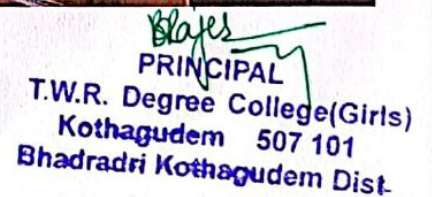 PRINCIPAL
T.W.R. Degree College(Girls)
Kothagudem 507 101
Bhadradri Kothagudem Dist-